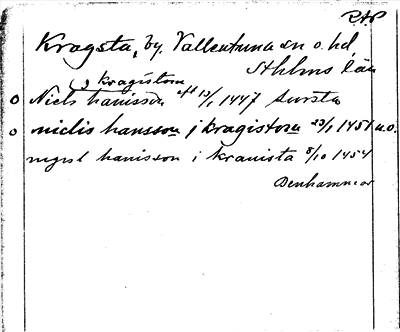 RAP
Kragsta, by. Vallentuna sn o. hd,
Sthlms län
j kragistom
Niels hanisson eft 13/1 1447 Sursta
niclis hansson j kragistom 23/1 1451 u.o.
hanisson i kranista 8/10 1454
Benhammar